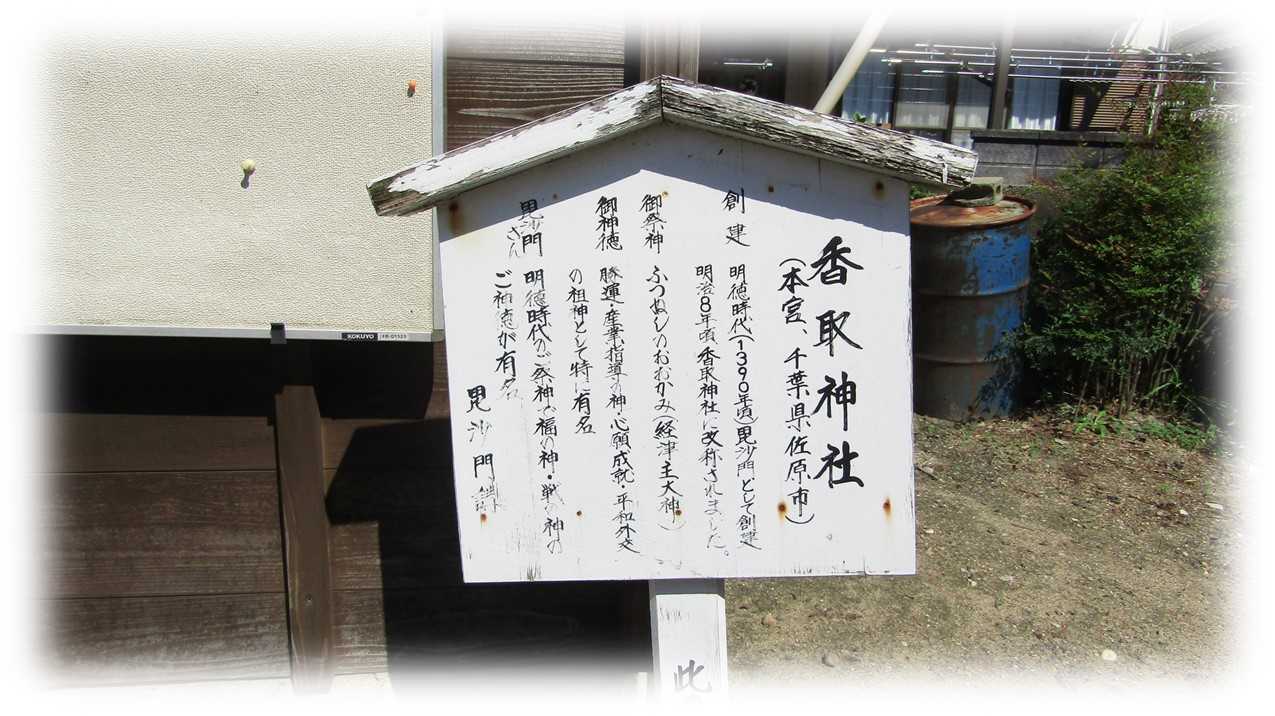 香取神社
(本宮、千葉県佐原市)
創建 明徳時代(1390年頃)毘沙門として創建
明治8年頃、香取神社に改称されました。
御祭神 ふつぬしのおおかみ(経津主大神)
御神徳 勝運・産業指導の神・心願成就・平和外交
の祖神として特に有名
毘沙門さん 明徳時代のご祭神や福の神・戦の神の
ご神徳が有名
毘沙門講
KOKUYO
此